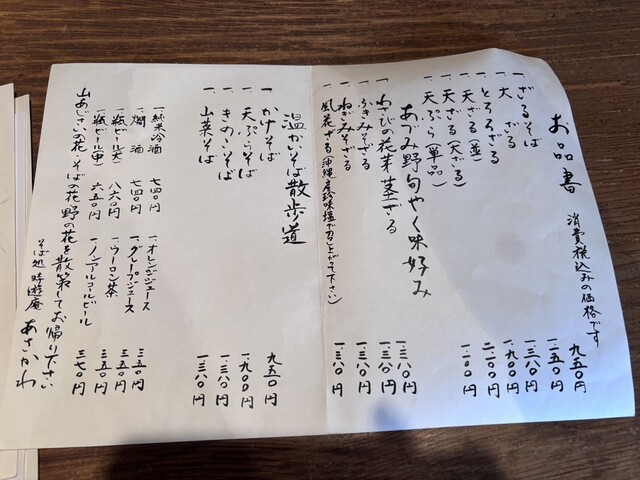 お品書 消費税込みの価格です
一 ざるそば 九五〇円
一 大ざる 一、一五〇円
一 とろろざる 一、三八〇円
一 天ざる(並) 一、九〇〇円
一 天ざる(大ざる) 二、一〇〇円
一 天ぷら(単品) 一、一〇〇円
あづみ野旬やく味好み
一 わさびの花芽茎ざる 一、三八〇円
一 ふきみそざる 一、三八〇円
一 ねぎみそざる 一、三八〇円
一 風花ざる(沖縄産珍味塩で召し上がって下さい) 一、三八〇円
温かいそば散歩道
一 かけそば 九五〇円
一 天ぷらそば 一、九〇〇円
一 きのこそば 一、三八〇円
一 山菜そば 一、三八〇円
一、純米冷酒 七四〇円 一、オレンジジュース 三五〇円
一、燗酒 七四〇円 一、グレープジュース 三五〇円
一、瓶ビール(大) 八六〇円 一、ウーロン茶 三五〇円
一、瓶ビール(中) 六五〇円 一、ノンアルコールビール 三七〇円
山あじさいの花・そばの花野の花を散策してお帰り下さい
そば処 時遊庵 あさかわ